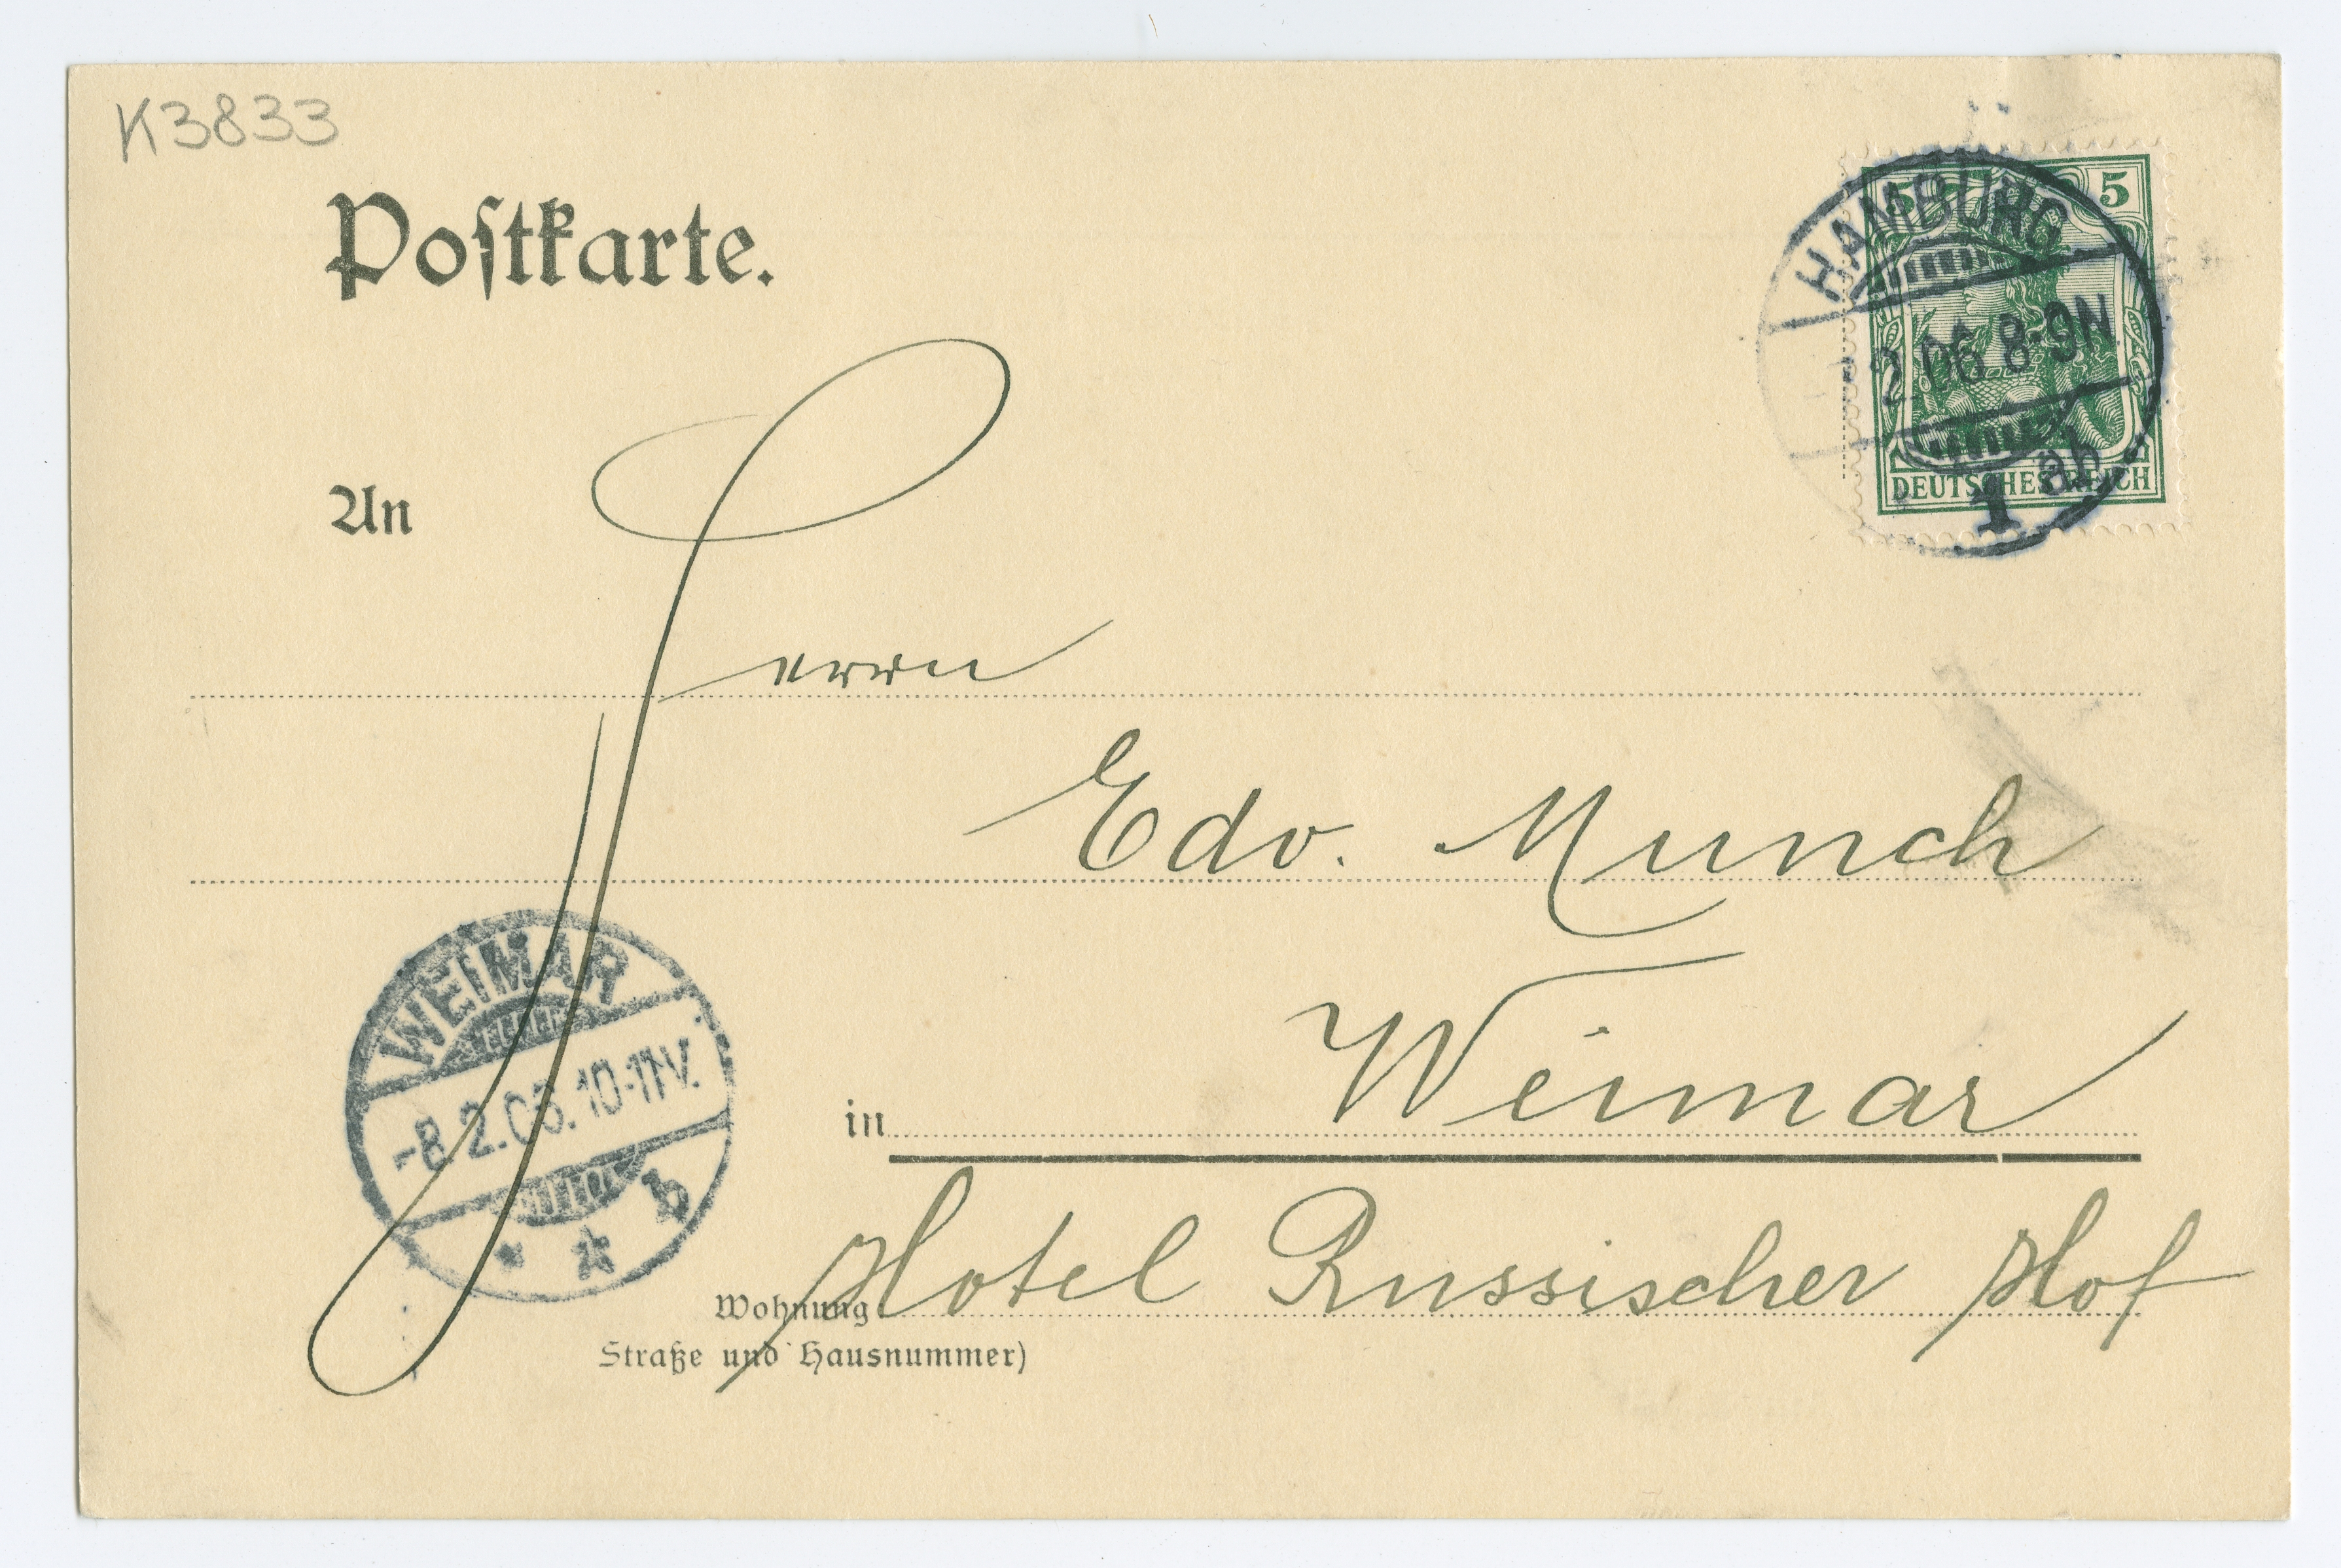 K3833
Postkarte.
5 5
DEUTSCHES REICH
HAMBURG
2.06 8-9N
1 ab
An
Herrn
Edv. Munch
WEIMAR
-8.2.06.10-11V.
b
in Weimar
Wohnung Hotel Russischer Hof
Straße und Hausnummer)